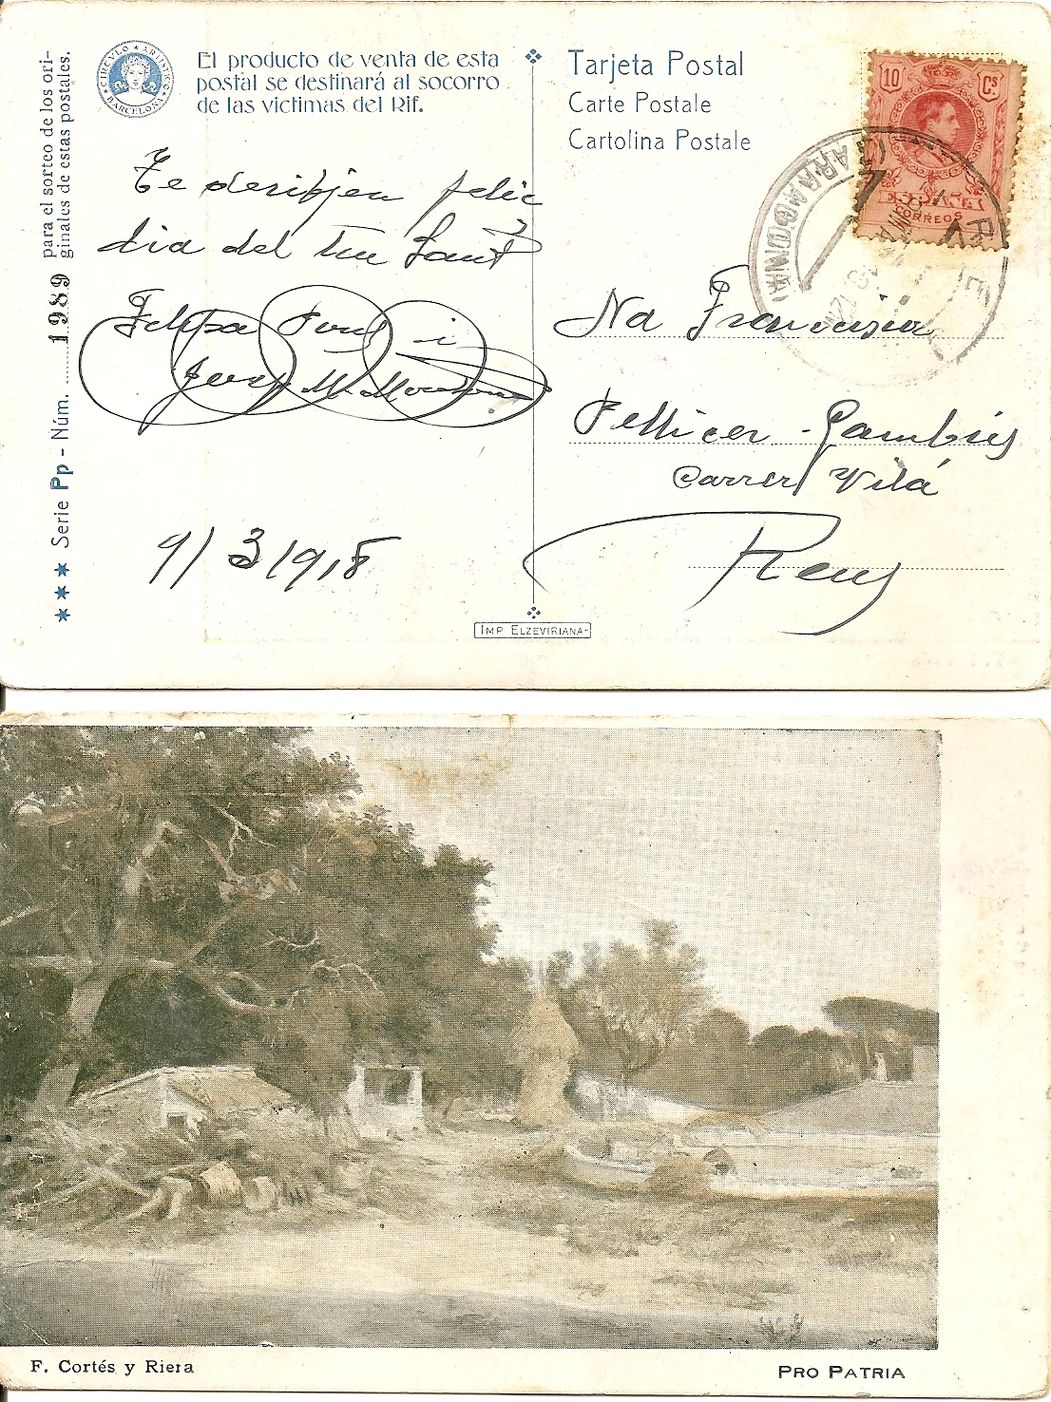 para el sorteo de los ori-
ginales de estas postales.
★ ★ ★ Serie Pp - Núm. 1989
CIRCVLO ★ ARTISTICO
BARCELONA
El producto de venta de esta
postal se destinará al socorro
de las victimas del Rif.
Tarjeta Postal
Carte Postale
Cartolina Postale
10 Cs
CORREOS
Te desitjen feliç
dia del teu Sant
Felipa i
Josep M.
9/3/918
Na Francisca
Pellicer - Gambús
Carrer Vilá
Reus
IMP ELZEVIRIANA-
F. Cortés y Riera
PRO PATRIA